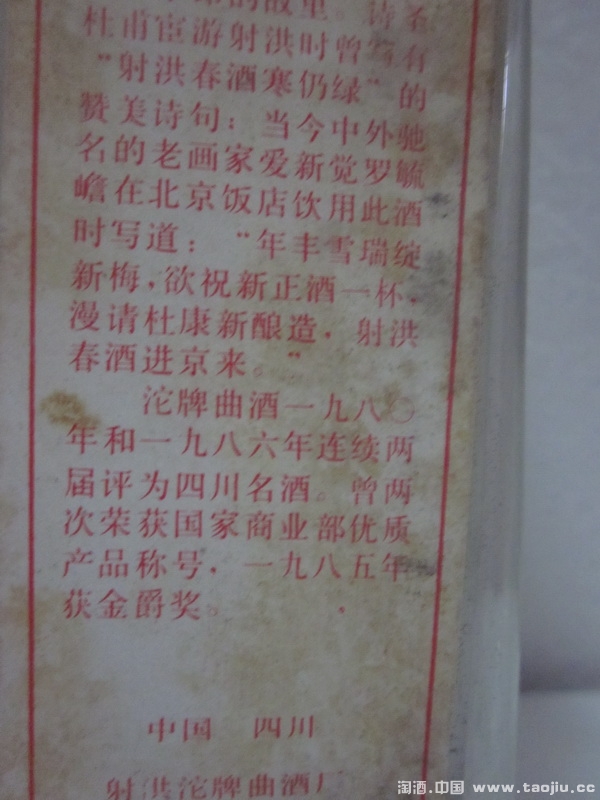 的故里。诗圣
杜甫宦游射洪时曾写有
“射洪春酒寒仍绿”的
赞美诗句：当今中外驰
名的老画家爱新觉罗毓
嶦在北京饭店饮用此酒
时写道：“年丰雪瑞绽
新梅，欲祝新正酒一杯，
漫请杜康新酿造，射洪
春酒进京来。”
沱牌曲酒一九八〇
年和一九八六年连续两
届评为四川名酒。曾两
次荣获国家商业部优质
产品称号，一九八五年
获金爵奖。
中国 四川
射洪沱牌曲酒厂
淘酒.中国 www.taojiu.cc